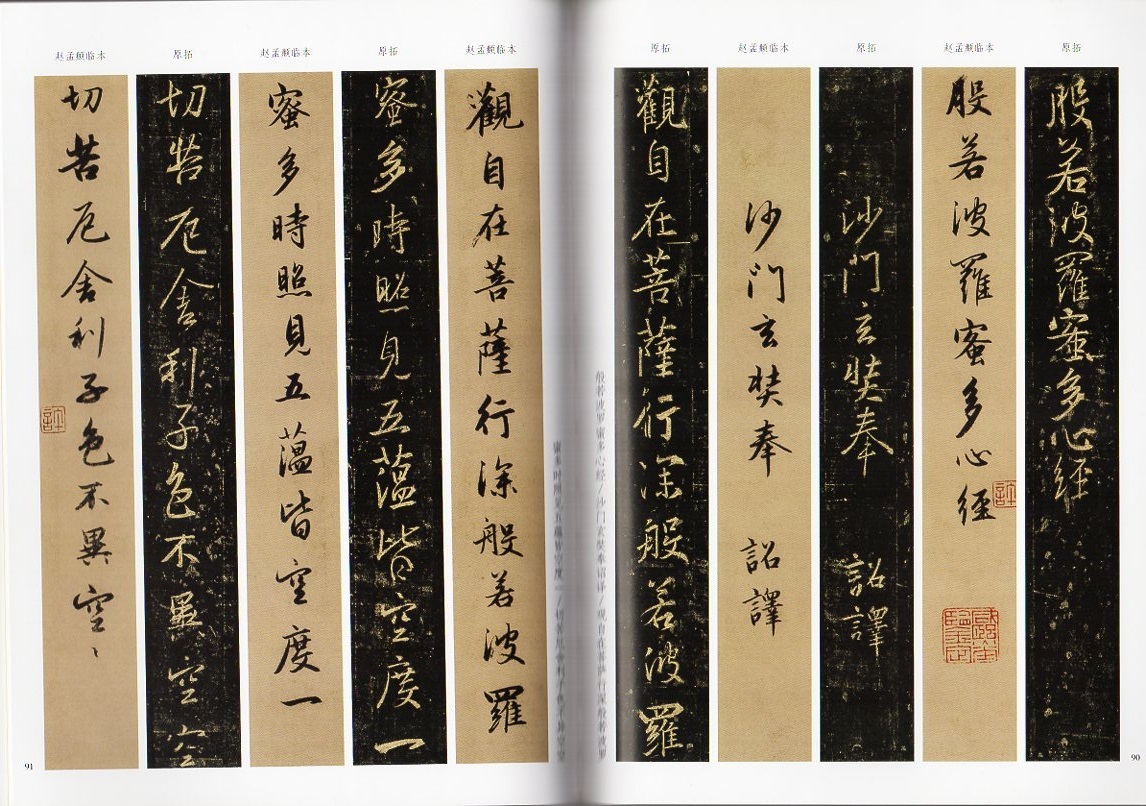 原拓
般若波羅蜜多心経
赵孟頫临本
般若波羅蜜多心經
原拓
沙門玄奘奉 詔譯
赵孟頫临本
沙门玄奘奉 詔譯
原拓
觀自在菩薩行深般若波羅
般若波罗蜜多心经/沙门玄奘奉诏译/观自在菩萨行深般若波罗
90
蜜多时照见五蕴皆空度一/切苦厄舍利子色不异空空
赵孟頫临本
觀自在菩薩行深般若波羅
原拓
蜜多時照見五蕰皆空度一
赵孟頫临本
蜜多時照見五蕰皆空度一
原拓
切苦厄舍利子色不異空空
赵孟頫临本
切苦厄舍利子色不異空〻
91